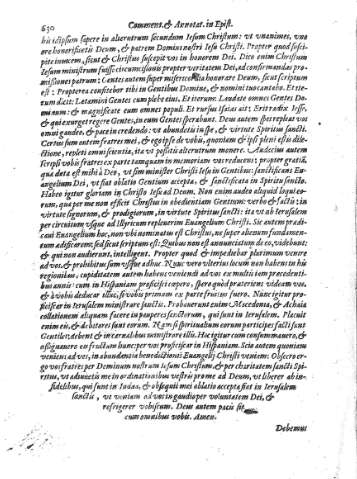 630
Comment. & Annotat. in Epist.
hic id ipsum sapere in alterutrum secundum Iesum Christum: vt vnanimes, vno
ore honorificetis Deum, & patrem Domini nostri Iesu Christi. Propter quod susci-
pite inuicem, sicut & Christus suscepit vos in honorem Dei. Dico enim Christum
Iesum ministrum fuisse circuncisionis propter veritatem Dei, ad confirmandas pro-
missiones patrum: Gentes autem super misericordia honorare Deum, sicut scriptum
est: Propterea confitebor tibi in Gentibus Domine, & nomini tuo cantabo. Et ite-
rum dicit: Lætamini Gentes cum plebe eius. Et iterum: Laudate omnes Gentes Do-
minum: & magnificate eum omnes populi. Et rursus Isaias ait: Erit radix Iesse,
& qui exurget regere Gentes, in eum Gentes sperabunt. Deus autem spei repleat vos
omni gaudio, & pace in credendo: vt abundetis in spe, & virtute Spiritus sancti.
Certus sum autem fratres mei, & ego ipse de vobis, quoniam & ipsi pleni estis dile-
ctione, repleti omni scientia, ita vt possitis alterutrum monere. Audacius autem
scripsi vobis fratres ex parte tamquam in memoriam vos reducens: propter gratiā,
quæ data est mihi à Deo, vt sim minister Christi Iesu in Gentibus: sanctificans Eu-
angelium Dei, vt fiat oblatio Gentium accepta, & sanctificata in Spiritu sancto.
Habeo igitur gloriam in Christo Iesu ad Deum. Non enim audeo aliquid loqui eo-
rum, quæ per me non efficit Christus in obedientiam Gentium: verbo & factis: in
virtute signorum, & prodigiorum, in virtute Spiritus sancti: ita vt ab Ierusalem
per circuitum vsque ad Illyricum repleuerim Euangelium Christi. Sic autem prædi-
caui Euangelium hoc, non vbi nominatus est Christus, ne super alienum fundamen-
tum ædificarem: sed sicut scriptum est: Quibus non est annunciatum de eo, videbunt:
& qui non audierunt, intelligent. Propter quod & impediebar plurimum venire
ad vos, & prohibitus sum vsque adhuc. Nunc vero vlterius locum non habens in his
regionibus, cupiditatem autem habens veniendi ad vos ex multis iam præcedenti-
bus annis: cum in Hispaniam proficisci cœpero, spero quod præteriens videam vos,
& à vobis deducar illuc, si vobis primum ex parte fruitus fuero. Nunc igitur pro-
ficiscar in Ierusalem ministrare sanctis. Probauerunt enim Macedonia, & Achaia
collationem aliquam facere in pauperes sanctorum, qui sunt in Ierusalem. Placuit
enim eis, & debitores sunt eorum. Nam si spiritualium eorum participes facti sunt
Gentiles: debent & in carnalibus ministrare illis. Hæc igitur cum consummauero, &
assignauero eis fructum hunc: per vos proficiscar in Hispaniam. Scio autem quoniam
veniens ad vos, in abundantia benedictionis Euangelij Christi veniam. Obsecro er-
go vos fratres per Dominum nostrum Iesum Christum, & per charitatem sancti Spi-
ritus, vt adiuuetis me in orationibus vestris pro me ad Deum, vt liberer ab in-
fidelibus, qui sunt in Iudæa, & obsequij mei oblatio accepta fiat in Ierusalem
sanctis, vt veniam ad vos in gaudio per voluntatem Dei, &
refrigerer vobiscum. Deus autem pacis sit
cum omnibus vobis. Amen.
Debemus